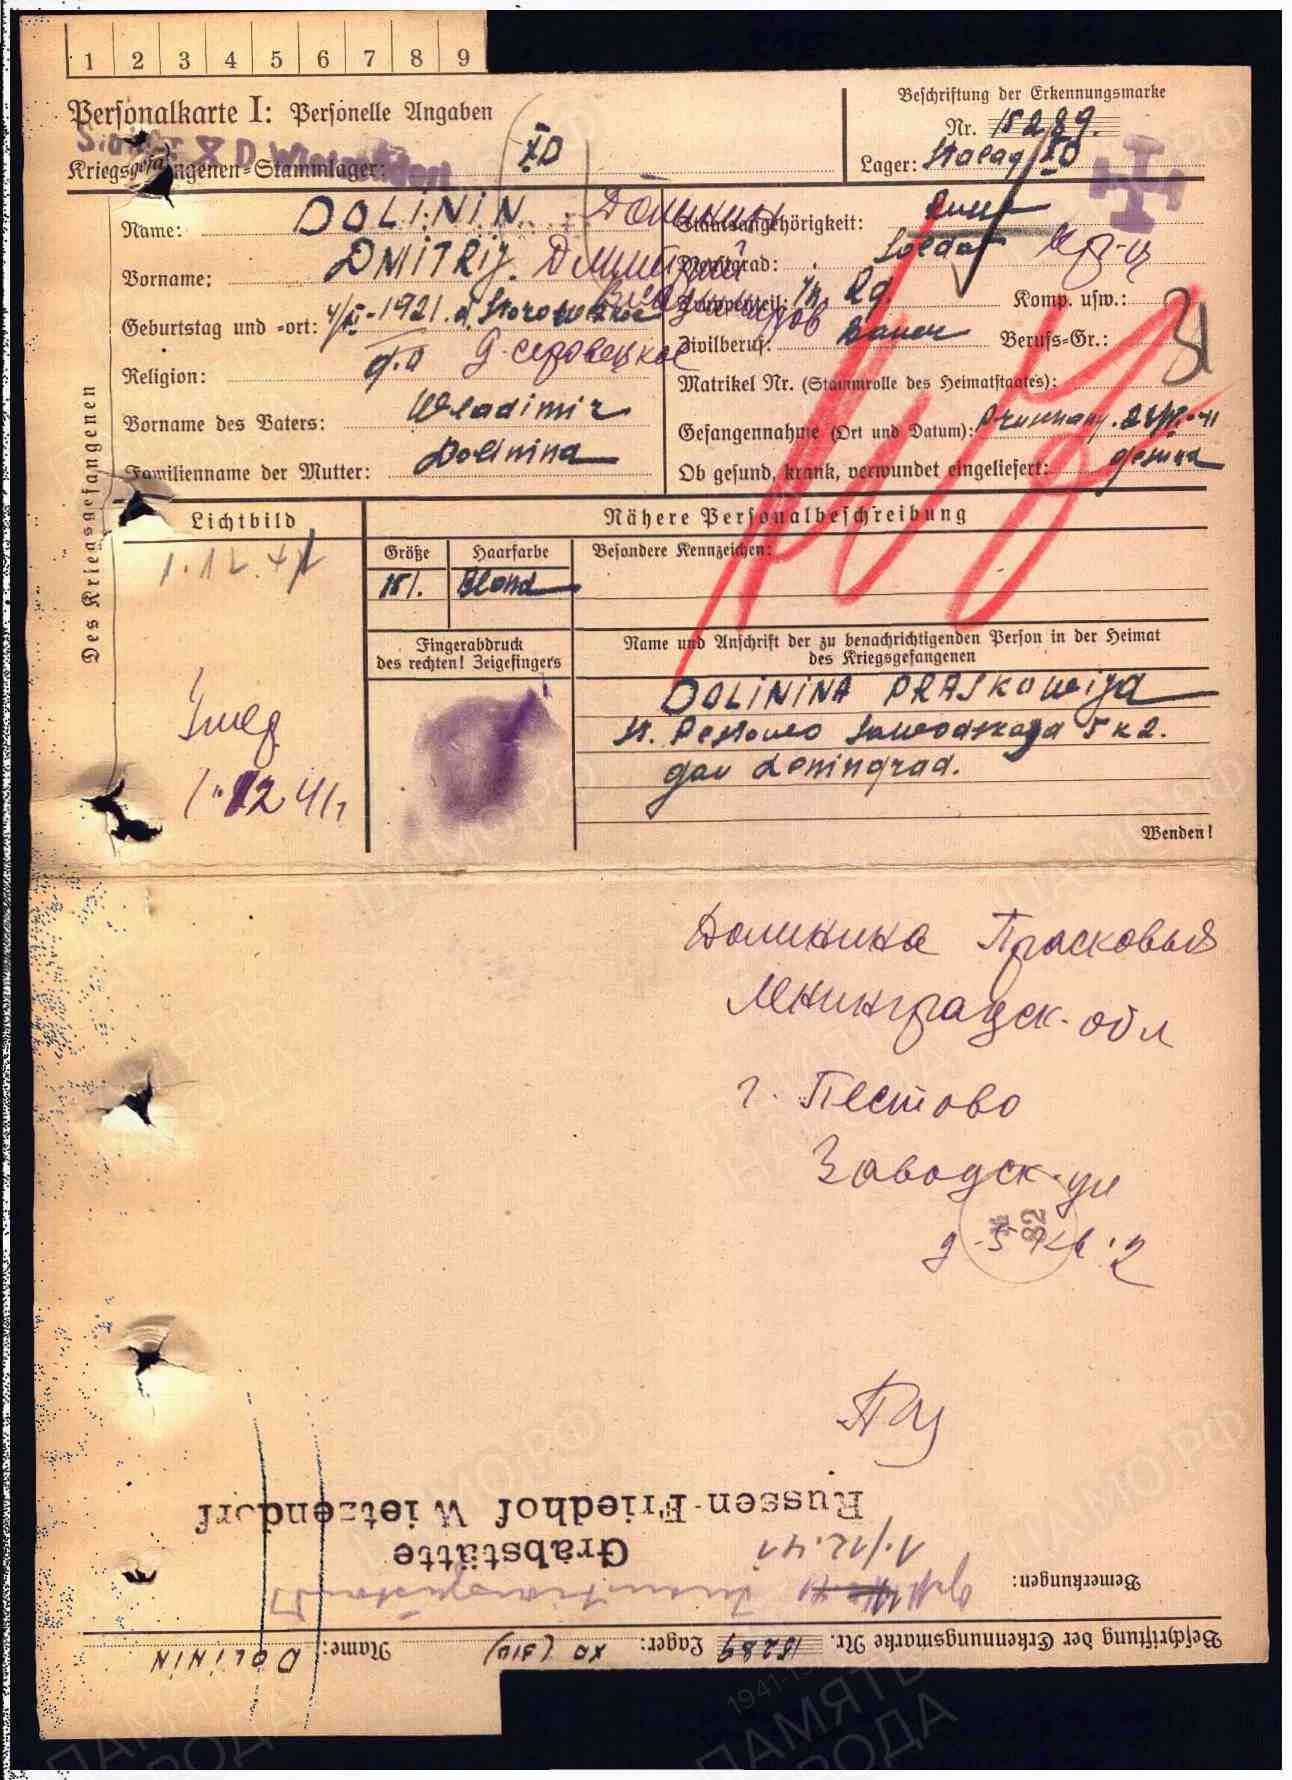 1 2 3 4 5 6 7 8 9
Personalkarte I: Personelle Angaben
Beschriftung der Erkennungsmarke
Nr. 15289.
Kriegsgefangenen-Stammlager: XD
Lager: Stalag XD
Des Kriegsgefangenen
Name: DOLININ Долинин
Staatsangehörigkeit:
Vorname: DMITRIJ. Дмитрий
Dienstgrad: Soldat
Владимиров
Truppenteil: Komp. usw.:
Geburtstag und -ort: 1921.
Zivilberuf: Bauer Berufs-Gr.:
31
Religion:
Matrikel Nr. (Stammrolle des Heimatstaates):
Vorname des Vaters: Wladimir
Gefangennahme (Ort und Datum):
Familienname der Mutter: Dolinina
Ob gesund, krank, verwundet eingeliefert: gesund
Lichtbild
Nähere Personalbeschreibung
1.12.41
Größe Haarfarbe Besondere Kennzeichen:
181. Blond
Fingerabdruck des rechten! Zeigefingers
Name und Anschrift der zu benachrichtigenden Person in der Heimat des Kriegsgefangenen
DOLININA PRASKOWIJA
St. Pestowo Sawodskaja 5 k 2.
gau Leningrad.
Умер
1.12 41 г
Wenden!
Долинина Прасковья
Лнинградск. обл
г. Пестово
Заводск. ул
д. 5 кв. 2
82
Russen-Friedhof Wietzendorf
Grabstätte
1./12.41
Bemerkungen:
Beschriftung der Erkennungsmarke Nr. 15289 Lager: XD (310) Name: DOLININ